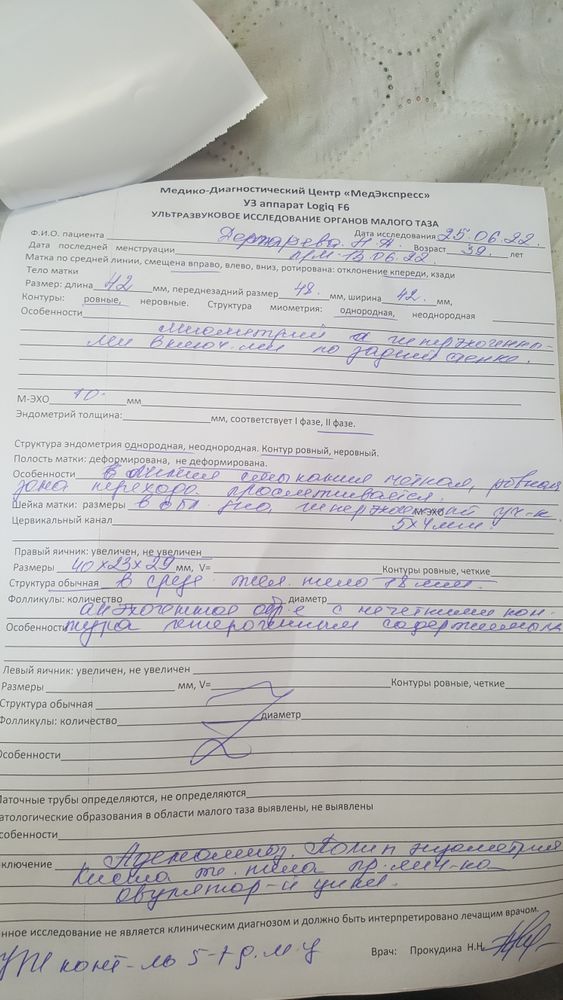 Медико-Диагностический Центр «МедЭкспресс»
УЗ аппарат Logiq F6
УЛЬТРАЗВУКОВОЕ ИССЛЕДОВАНИЕ ОРГАНОВ МАЛОГО ТАЗА
Ф.И.О. пациента Н.А. Дата исследования 25.06.22.
Дата последней менструации 13.06.22. Возраст 39 лет
Матка по средней линии, смещена вправо, влево, вниз, ротирована: отклонение кпереди, кзади
Тело матки
Размер: длина 42 мм, переднезадний размер 48. мм, ширина 42. мм,
Контуры: ровные, неровные. Структура миометрия: однородная, неоднородная
Особенности
миометрий с гиперэхогенны-
ми включ-ми по задней стенке.
М-ЭХО 10. мм
Эндометрий толщина: мм, соответствует I фазе, II фазе.
Структура эндометрия однородная, неоднородная. Контур ровный, неровный.
Полость матки: деформирована, не деформирована.
Особенности линия смыкания четкая, ровная
зона перехода прослеживается.
Шейка матки: размеры в обл дна гиперэхогенный уч-к М-ЭХО
Цервикальный канал 5х4мм.
Правый яичник: увеличен, не увеличен
Размеры 40х23х29 мм, V= Контуры ровные, четкие
Структура обычная в среде жел. тело 18 мм.
Фолликулы: количество диаметр
анэхогенное обр-е с нечеткими кон-
Особенности тура гетерогенным содержимым
Левый яичник: увеличен, не увеличен
Размеры мм, V= Контуры ровные, четкие
Структура обычная
Фолликулы: количество диаметр
Особенности
Маточные трубы определяются, не определяются
атологические образования в области малого таза выявлены, не выявлены
собенности
ключение Аденомиоз. Полип эндометрия
Киста ж. тела пр. яич-ка
овулятор-й цикл.
нное исследование не является клиническим диагнозом и должно быть интерпретировано лечащим врачом.
УЗИ конт-ль 5-7 д.м.ц Врач: Прокудина Н.Н.